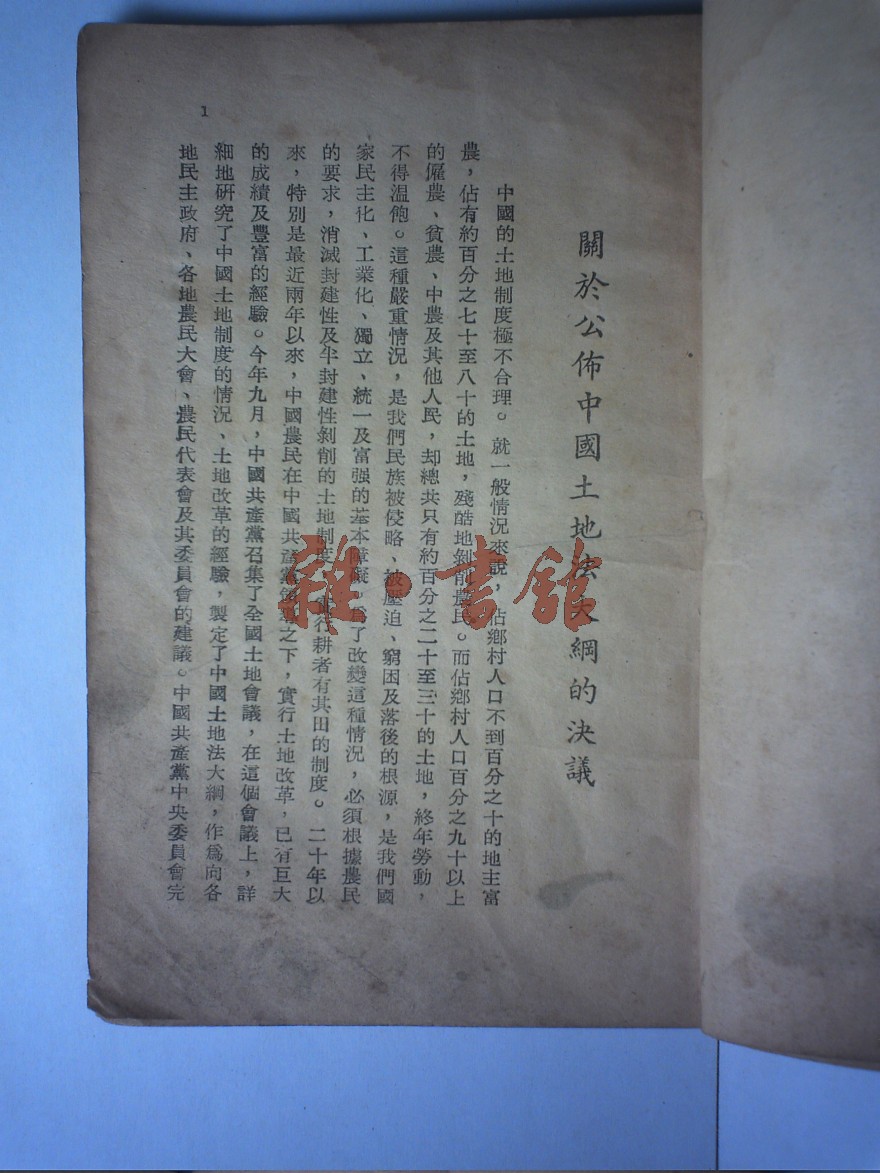 關於公佈中國土地法大綱的決議
中國的土地制度極不合理。就一般情況來說，佔鄉村人口不到百分之十的地主富
農，佔有約百分之七十至八十的土地，殘酷地剝削農民。而佔鄉村人口百分之九十以上
的僱農、貧農、中農及其他人民，却總共只有約百分之二十至三十的土地，終年勞動，
不得溫飽。這種嚴重情況，是我們民族被侵略、被壓迫、窮困及落後的根源，是我們國
家民主化、工業化、獨立、統一及富强的基本障礙。爲了改變這種情況，必須根據農民
的要求，消滅封建性及半封建性剝削的土地制度，實行耕者有其田的制度。二十年以
來，特別是最近兩年以來，中國農民在中國共產黨領導之下，實行土地改革，已有巨大
的成績及豐富的經驗。今年九月，中國共產黨召集了全國土地會議，在這個會議上，詳
細地研究了中國土地制度的情況、土地改革的經驗，製定了中國土地法大綱，作爲向各
地民主政府、各地農民大會、農民代表會及其委員會的建議。中國共產黨中央委員會完
1
雜·書館